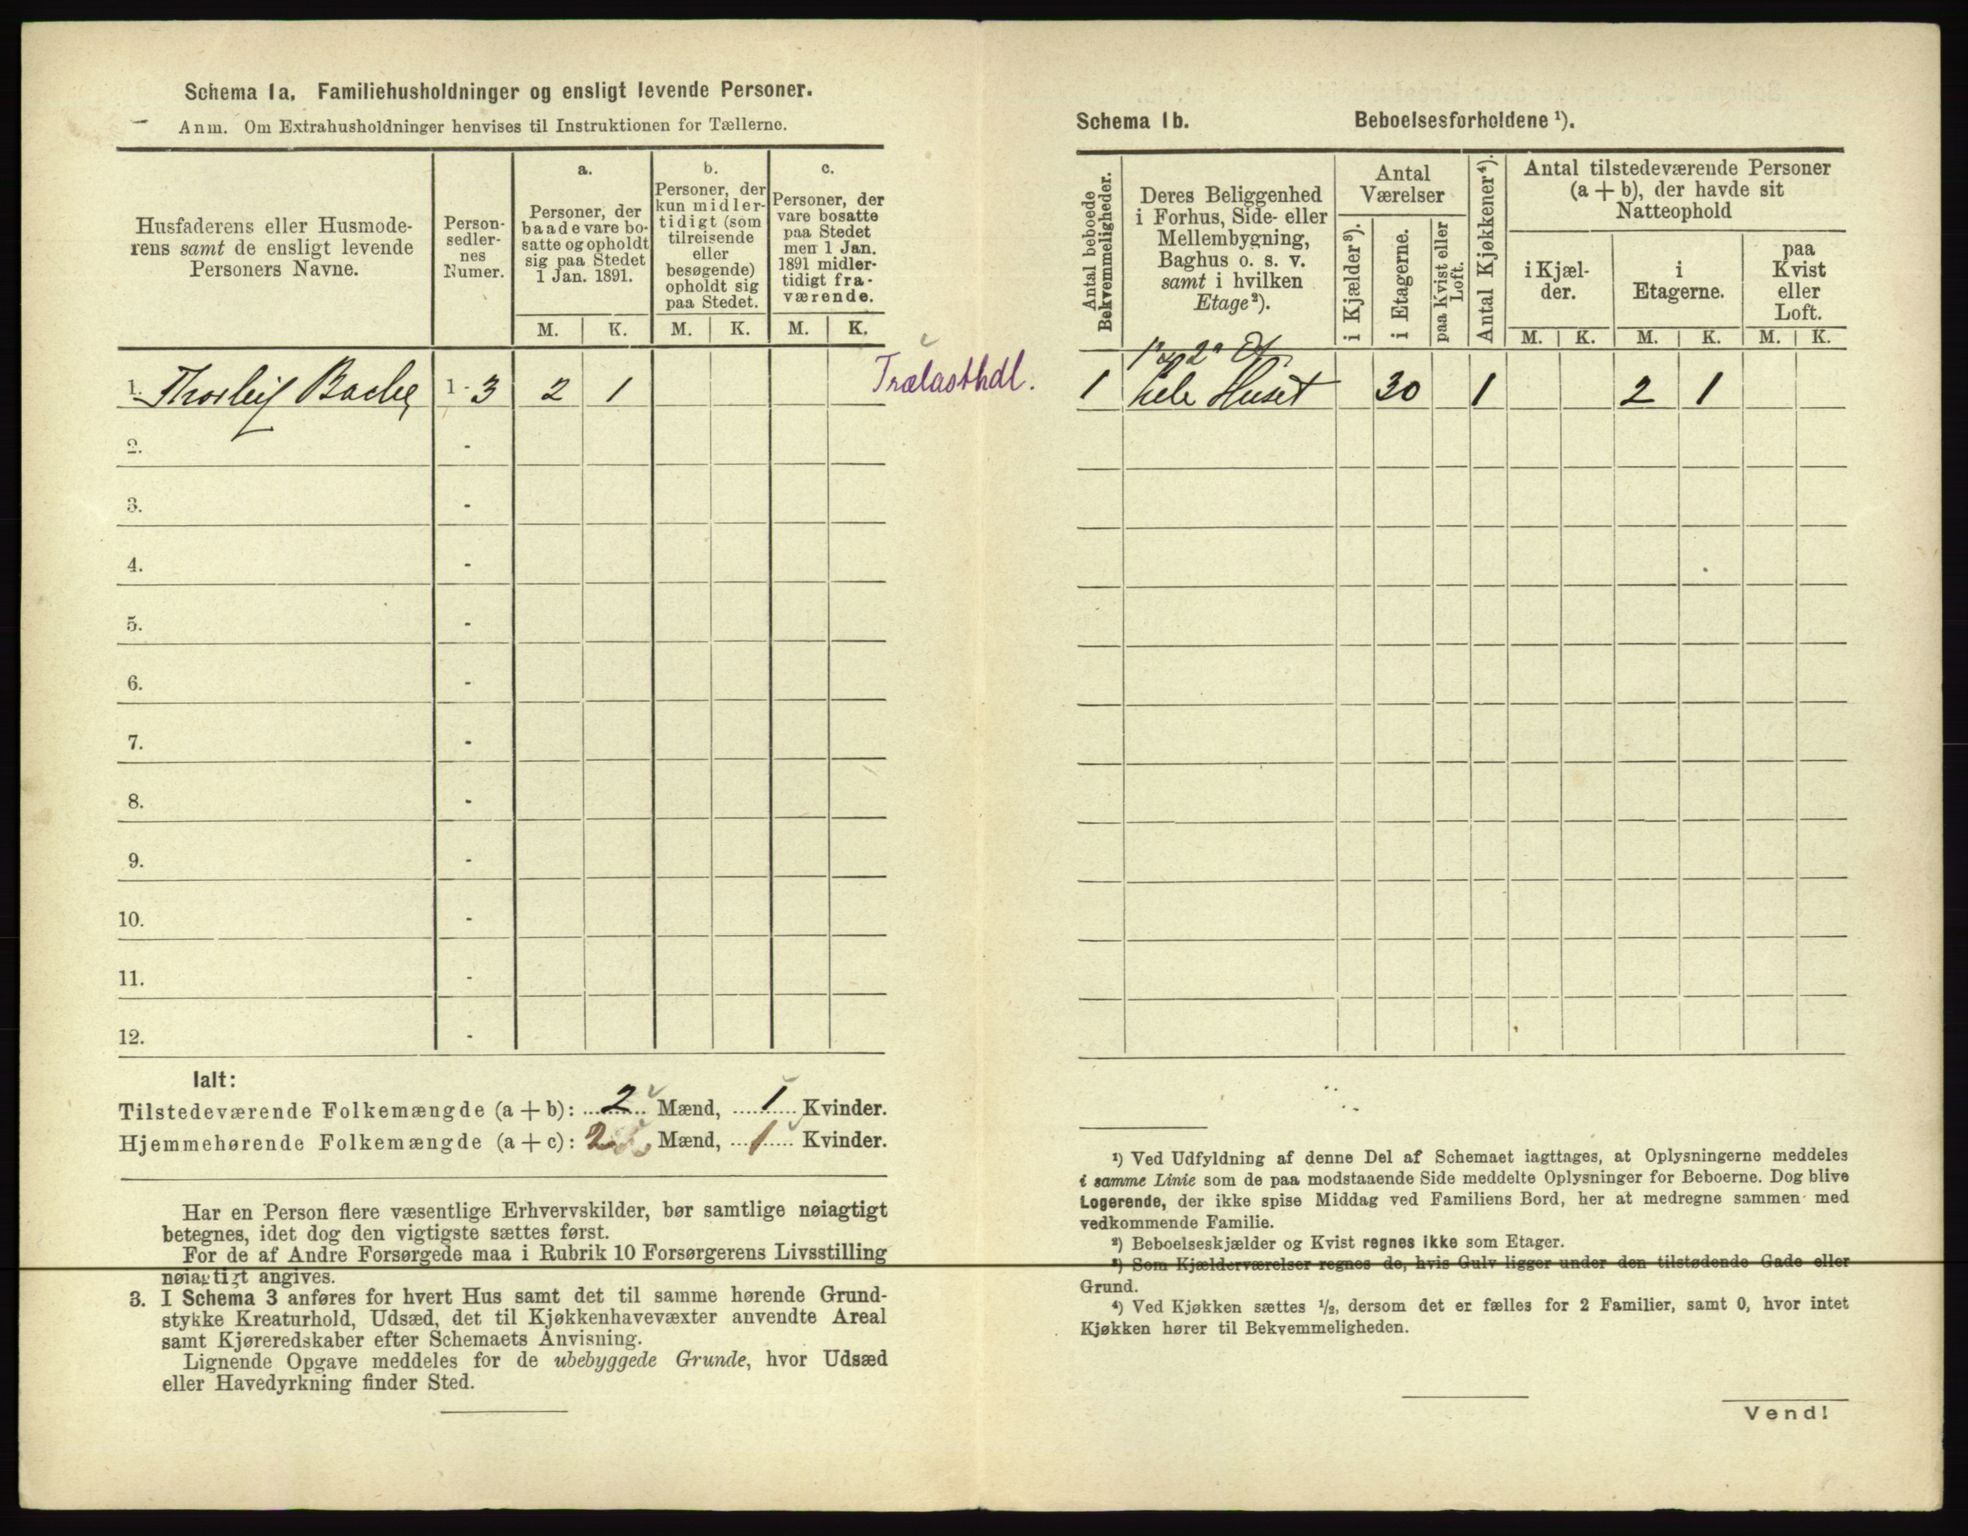 Schema 1a. Familiehusholdninger og ensligt levende Personer.
Anm. Om Extrahusholdninger henvises til Instruktionen for Tællerne.
Husfaderens eller Husmode-
rens samt de ensligt levende
Personers Navne.
Person-
sedler-
nes
Numer.
a.
Personer, der
baade vare bo-
satte og opholdt
sig paa Stedet
1 Jan. 1891.
b.
Personer, der
kun midler-
tidigt (som
tilreisende
eller
besøgende)
opholdt sig
paa Stedet.
c.
Personer, der
vare bosatte
paa Stedet
men 1 Jan.
1891 midler-
tidigt fra-
værende.
M. K. M. K. M. K.
1. Thorleif Bache 1 - 3 2 1 Trælasthdl.
2. -
3. -
4. -
5. -
6. -
7. -
8. -
9. -
10. -
11. -
12. -
Ialt:
Tilstedeværende Folkemængde (a + b): 2 Mænd, 1 Kvinder.
Hjemmehørende Folkemængde (a + c): 2 Mænd, 1 Kvinder.
Har en Person flere væsentlige Erhvervskilder, bør samtlige nøiagtigt
betegnes, idet dog den vigtigste sættes først.
For de af Andre Forsørgede maa i Rubrik 10 Forsørgerens Livsstilling
nøiagtigt angives.
3. I Schema 3 anføres for hvert Hus samt det til samme hørende Grund-
stykke Kreaturhold, Udsæd, det til Kjøkkenhavevæxter anvendte Areal
samt Kjøreredskaber efter Schemaets Anvisning.
Lignende Opgave meddeles for de ubebyggede Grunde, hvor Udsæd
eller Havedyrkning finder Sted.
Schema 1b. Beboelsesforholdene ¹).
Antal beboede
Bekvemmeligheder.
Deres Beliggenhed
i Forhus, Side- eller
Mellembygning,
Baghus o. s. v.
samt i hvilken
Etage²).
Antal
Værelser
i Kjælder³).
i Etagerne.
paa Kvist eller
Loft.
Antal Kjøkkener⁴).
Antal tilstedeværende Personer
(a + b), der havde sit
Natteophold
i Kjæl-
der.
i
Etagerne.
paa
Kvist
eller
Loft.
M. K. M. K. M. K.
1 hele Huset 30 1 2 1
¹) Ved Udfyldning af denne Del af Schemaet iagttages, at Oplysningerne meddeles
i samme Linie som de paa modstaaende Side meddelte Oplysninger for Beboerne. Dog blive
Logerende, der ikke spise Middag ved Familiens Bord, her at medregne sammen med
vedkommende Familie.
²) Beboelseskjælder og Kvist regnes ikke som Etager.
³) Som Kjælderværelser regnes de, hvis Gulv ligger under den tilstødende Gade eller
Grund.
⁴) Ved Kjøkken sættes ½, dersom det er fælles for 2 Familier, samt 0, hvor intet
Kjøkken hører til Bekvemmeligheden.
Vend!